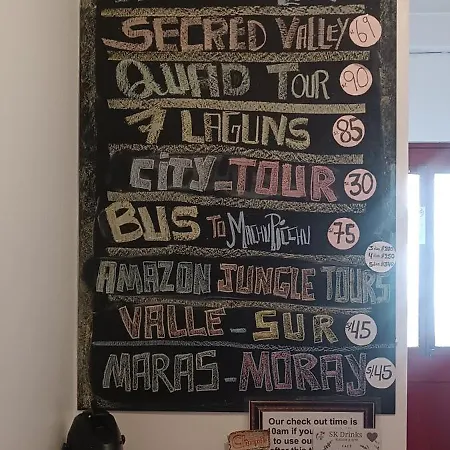 SECRED VALLEY 69
QUAD TOUR 90
7 LAGUNS 85
CITY-TOUR 30
BUS TO MACHUPICCHU 75
AMAZON JUNGLE TOURS
VALLE-SUR 45
MARAS-MORAY S/45
Our check out time is
10am if you
to use ou
after this t
SR Drinks